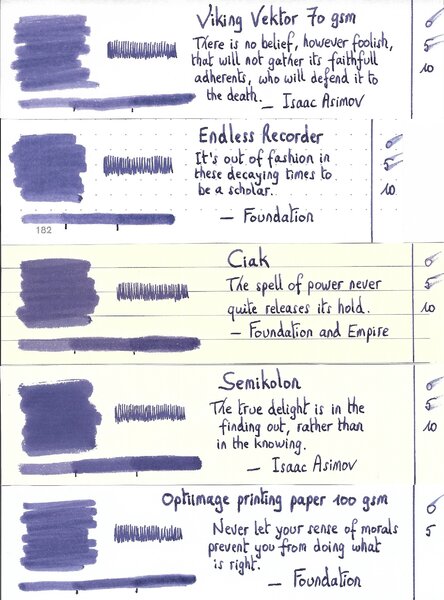 Viking Vektor 70 gsm
There is no belief, however foolish,
that will not gather its faithfull
adherents, who will defend it to
the death.
— Isaac Asimov
0
5
10
Endless Recorder
It's out of fashion in
these decaying times to
be a scholar.
— Foundation
0
5
10
182
Ciak
The spell of power never
quite releases its hold.
— Foundation and Empire
0
5
10
Semikolon
The true delight is in the
finding out, rather than
in the knowing.
— Isaac Asimov
0
5
10
Optiimage printing paper 100 gsm
Never let your sense of morals
prevent you from doing what
is right.
— Foundation
0
5